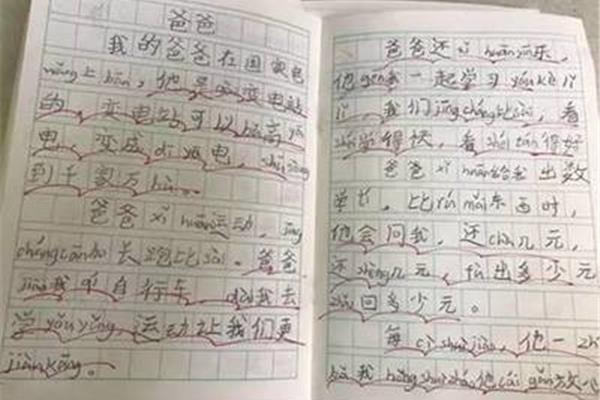 爸爸
我的爸爸在国家电
wǎng上bān，他是gǎo变电站
的，变电站可以bǎ高yā
电，变成dī yā电，shū sòng
到千家万hù。
爸爸xǐ huān运动，jīng
cháng cān jiā长跑比sài。爸爸
jiāo我qí自行车，dài我去
学yóu yǒng，运动让我们更
jiàn kāng。
爸爸还xǐ huān yīn乐，
他gēn我一起学习yóu kè lǐ
lǐ，我们jīng cháng比sài，看
shéi学得快，看shéi tán得好
爸爸xǐ huān给我出数
学tí，比rú mǎi东西时，
他会问我，还chà几元，
还shèng几元，fù出多少元
zhǎo回多少元。
每cì shuì jiào，他一zhí
péi我